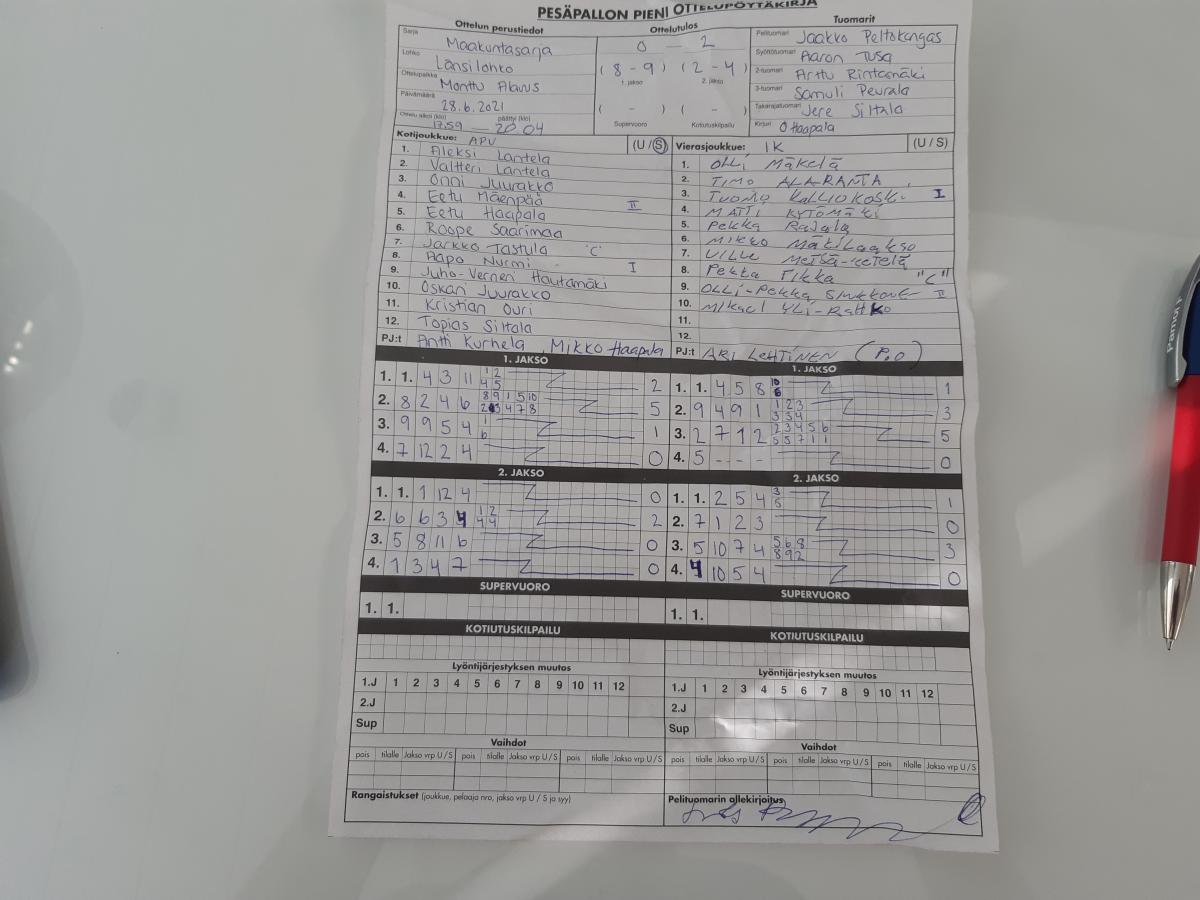 PESÄPALLON PIENI OTTELUPÖYTÄKIRJA
Ottelun perustiedot
Sarja Maakuntasarja
Lohko Länsilohko
Ottelupaikka Monttu Alavus
Päivämäärä 28.6.2021
Ottelu alkoi (klo) 17.59 — päättyi (klo) 20.04
Ottelutulos
0 — 2
(8 - 9) (2 - 4)
1. jakso 2. jakso
( - ) ( - )
Supervuoro Kotiutuskilpailu
Tuomarit
Pelituomari Jaakko Peltokangas
Syöttötuomari Aaron Tusa
2-tuomari Arttu Rintamäki
3-tuomari Samuli Peurala
Takarajatuomari Jere Siltala
Kirjuri O Haapala
Kotijoukkue: APV (U / S)
1. Aleksi Lantela
2. Valtteri Lantela
3. Onni Juurakko
4. Eetu Mäenpää II
5. Eetu Haapala
6. Roope Saarimaa
7. Jarkko Tastula "C"
8. Aapo Nurmi I
9. Juho-Verneri Hautamäki
10. Oskari Juurakko
11. Kristian Ouri
12. Topias Siltala
PJ:t Antti Kurhela, Mikko Haapala
Vierasjoukkue: IK (U / S)
1. OLLI Mäkelä
2. TIMO ALARANTA
3. TUOMO KALLIOKOSKI I
4. MATTI KYTÖMÄKI
5. Pekka Rajala
6. MIKKO Mäkilaakso
7. VILLE Metsä-Ketelä
8. Pekka Tikka "C"
9. OLLI-Pekka II
10. Mikael YLI-RatKKo
11.
12.
PJ:t ARI LEHTINEN (P.O)
1. JAKSO
1. 1. 4 3 11 1 2 2
4 5
2. 8 2 4 6 8 9 1 5 10 5
2 3 4 7 8
3. 9 9 5 4 1 1
6
4. 7 12 2 4 0
1. JAKSO
1. 1. 4 5 8 10 1
6
2. 9 4 9 1 1 2 3 3
3 3 4
3. 2 7 1 2 2 3 4 5 6 5
5 5 7 1 1
4. 5 - - - 0
2. JAKSO
1. 1. 1 12 4 0
2. 6 6 3 4 1 2 2
4 4
3. 5 8 11 6 0
4. 1 3 4 7 0
2. JAKSO
1. 1. 2 5 4 3 1
5
2. 7 1 2 3 0
3. 5 10 7 4 5 6 8 3
8 9 2
4. 4 10 5 4 0
SUPERVUORO
1. 1.
SUPERVUORO
1. 1.
KOTIUTUSKILPAILU
KOTIUTUSKILPAILU
Lyöntijärjestyksen muutos
1.J 1 2 3 4 5 6 7 8 9 10 11 12
2.J
Sup
Lyöntijärjestyksen muutos
1.J 1 2 3 4 5 6 7 8 9 10 11 12
2.J
Sup
Vaihdot
pois tilalle Jakso vrp U / S pois tilalle Jakso vrp U / S pois tilalle Jakso vrp U / S
Vaihdot
pois tilalle Jakso vrp U / S pois tilalle Jakso vrp U / S pois tilalle Jakso vrp U / S
Rangaistukset (joukkue, pelaaja nro, jakso vrp U / S ja syy)
Pelituomarin allekirjoitus